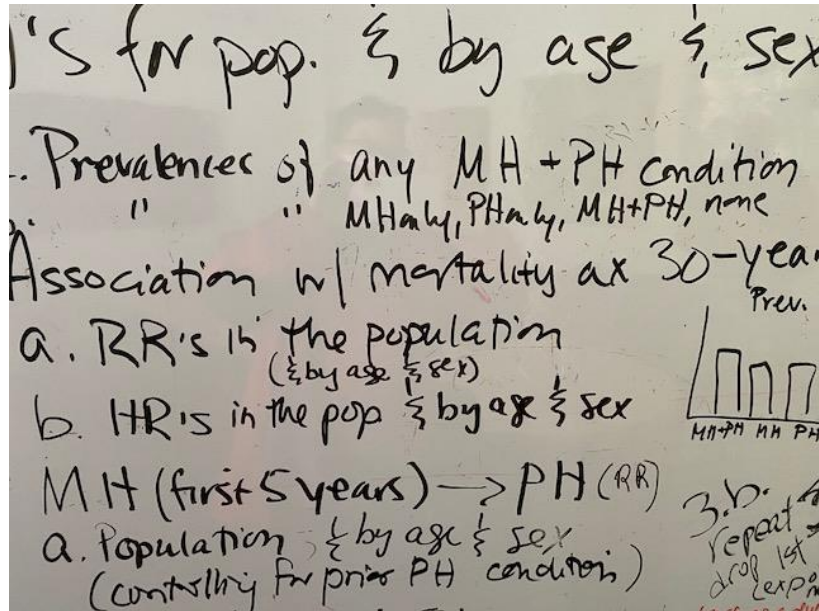 )'s for pop. & by age & sex
. Prevalences of any MH + PH condition
" " MH only, PH only, MH+PH, none
Association w/ mortality ax 30-year
Prev.
a. RR's in the population
(& by age & sex)
b. HR's in the pop & by age & sex
MH+PH MH PH
MH (first 5 years) → PH (RR)
a. Population & by age & sex
(controlling for prior PH condition)
3.b.
repeat
drop 1st